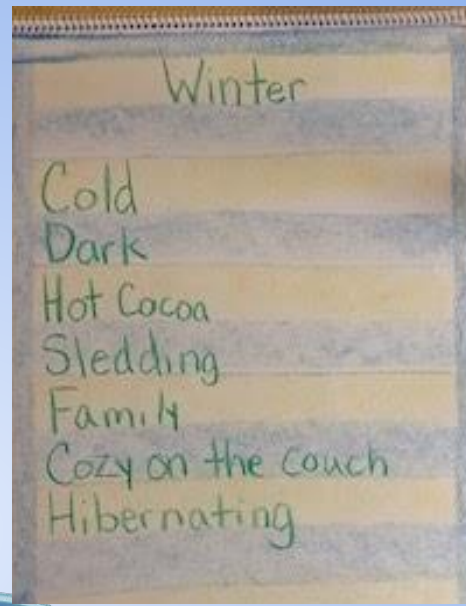 Winter
Cold
Dark
Hot Cocoa
Sledding
Family
Cozy on the couch
Hibernating